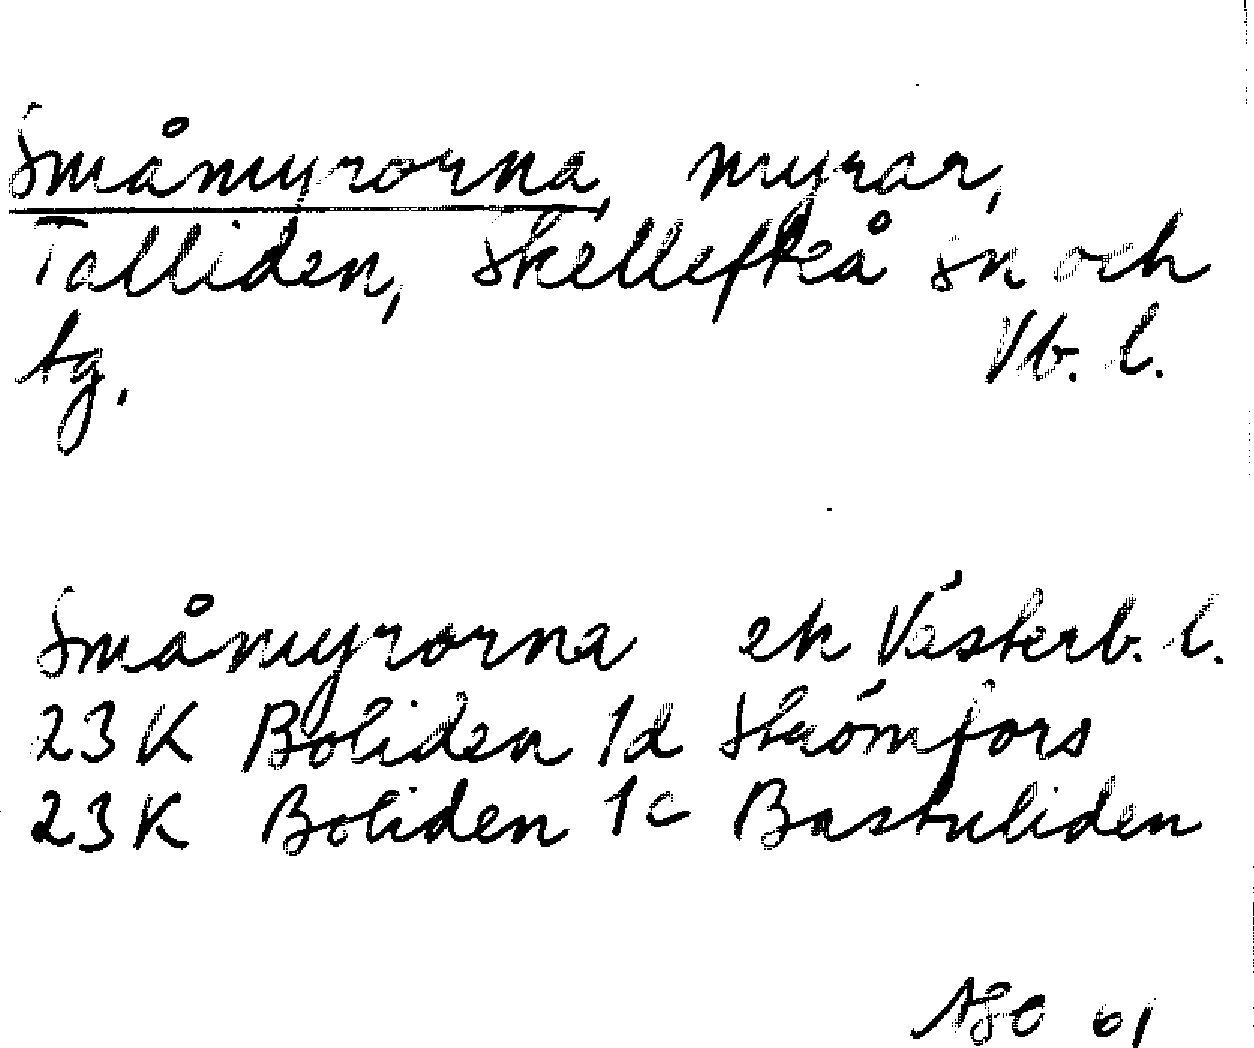 Småmyrorna, myrar,
Talliden, Skellefteå sn och
tg. Vb. l.
Småmyrorna ek Västerb. l.
23K Boliden 1d Strömfors
23K Boliden 1c Bastuliden
61